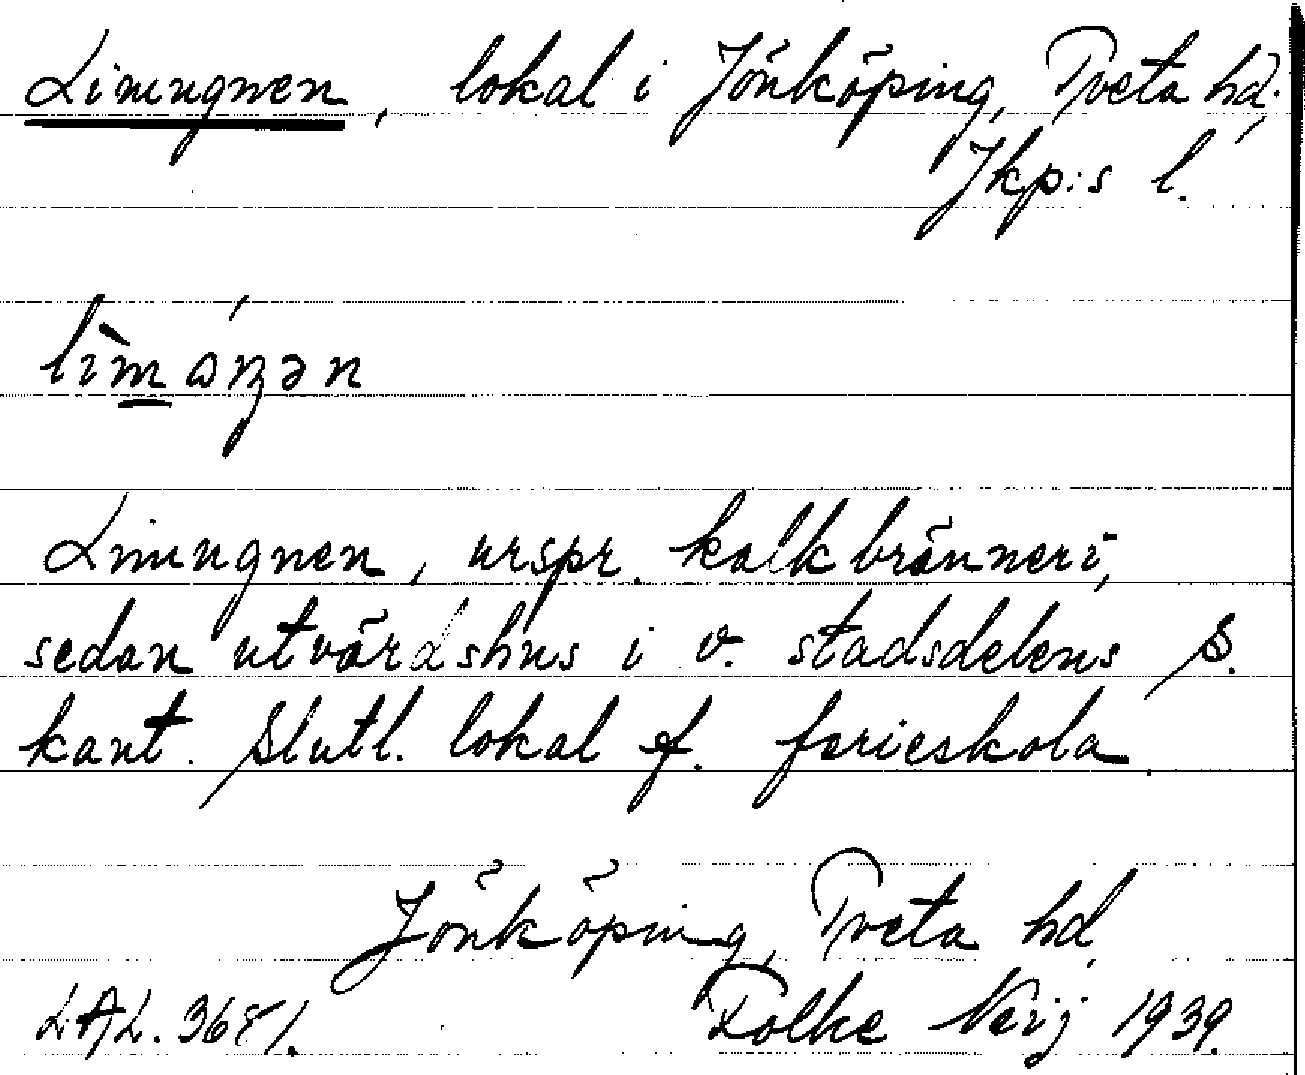 Limugnen, lokal i Jönköping, Tveta hd,
Jkp:s l.
Limugnen, urspr. kalkbränneri,
sedan utvärdshus i v. stadsdelens S.
kant. Slutl. lokal f. ferieskola.
Jönköping, Tveta hd,
LAL. 3681. Folke Neij 1939.